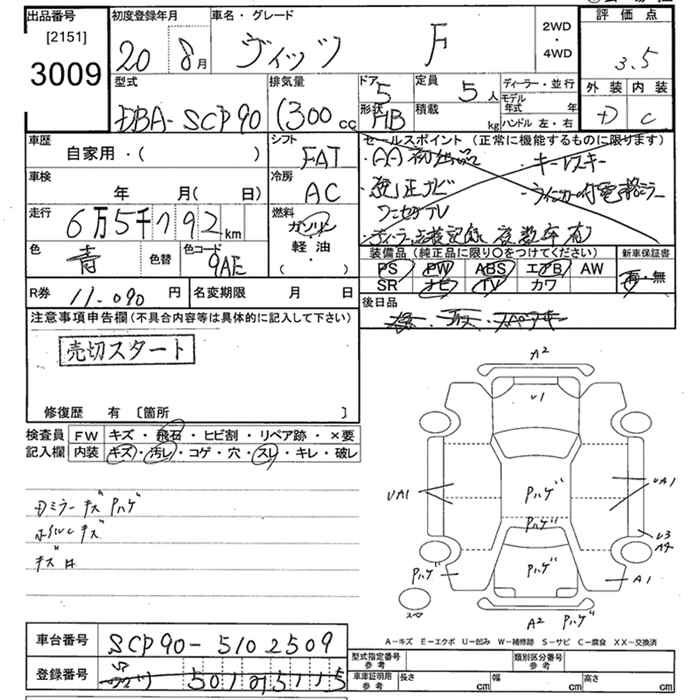 出品番号
[2151]
3009
初度登録年月
20 8月
車名・グレード
ヴィッツ F
2WD
・
4WD
評価点
3.5
外装 内装
D C
型式
DBA-SCP90
排気量
1300 cc
ドア
5
定員
5人
形状
HB
積載
kg
ディーラー・並行
モデル年式 年
ハンドル 左・右
車歴
自家用・( )
シフト
FAT
セールスポイント (正常に機能するものに限ります)
・キーレスキー
・純正ナビ
・ウインカー付電格ミラー
ワンセグTV
・ディーラー点検記録 複数年有
車検
年 月( 日)
冷房
AC
走行
6万5千792km
燃料
ガソリン
軽油・
( )
色
青
色替
色コード
9AE
装備品 (純正品に限り○をつけてください)
PS PW ABS エアB AW
SR ナビ TV カワ
新車保証書
有・無
R券
11.090円
名変期限 月 日
後日品
注意事項申告欄(不具合内容等は具体的に記入して下さい)
売切スタート
修復歴 有 [箇所 ]
検査員
記入欄
FW キズ・飛石・ヒビ割・リペア跡・×要
内装 キズ・汚レ・コゲ・穴・スレ・キレ・破レ
Dミラー キズ Pハゲ
ホイルC キズ
キズ H
A2
U1
UA1
UA1
Pハゲ
Pハゲ
U3
A4
Pハゲ
Pハゲ
A1
スペア
A2 Pハゲ
A-キズ E-エクボ U-凹み W-補修跡 S-サビ C-腐食 XX-交換済
車台番号
SCP90-5102509
登録番号
型式指定番号
参考
類別区分番号
参考
車庫証明用
参考
長さ cm 幅 cm 高さ cm